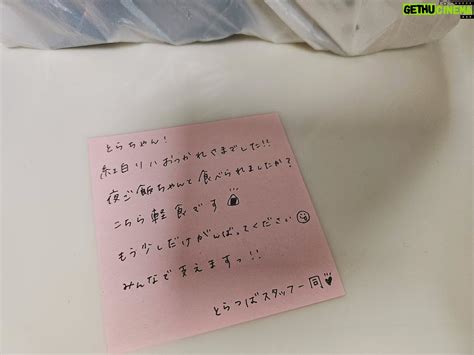 GETHUCINEMA
とらちゃん!
紅白リハおつかれさまでした!!
夜ご飯ちゃんと食べられましたか?
こちら軽食です
もう少しだけがんばってください
みんなで支えますっ!!
とらつばスタッフ一同